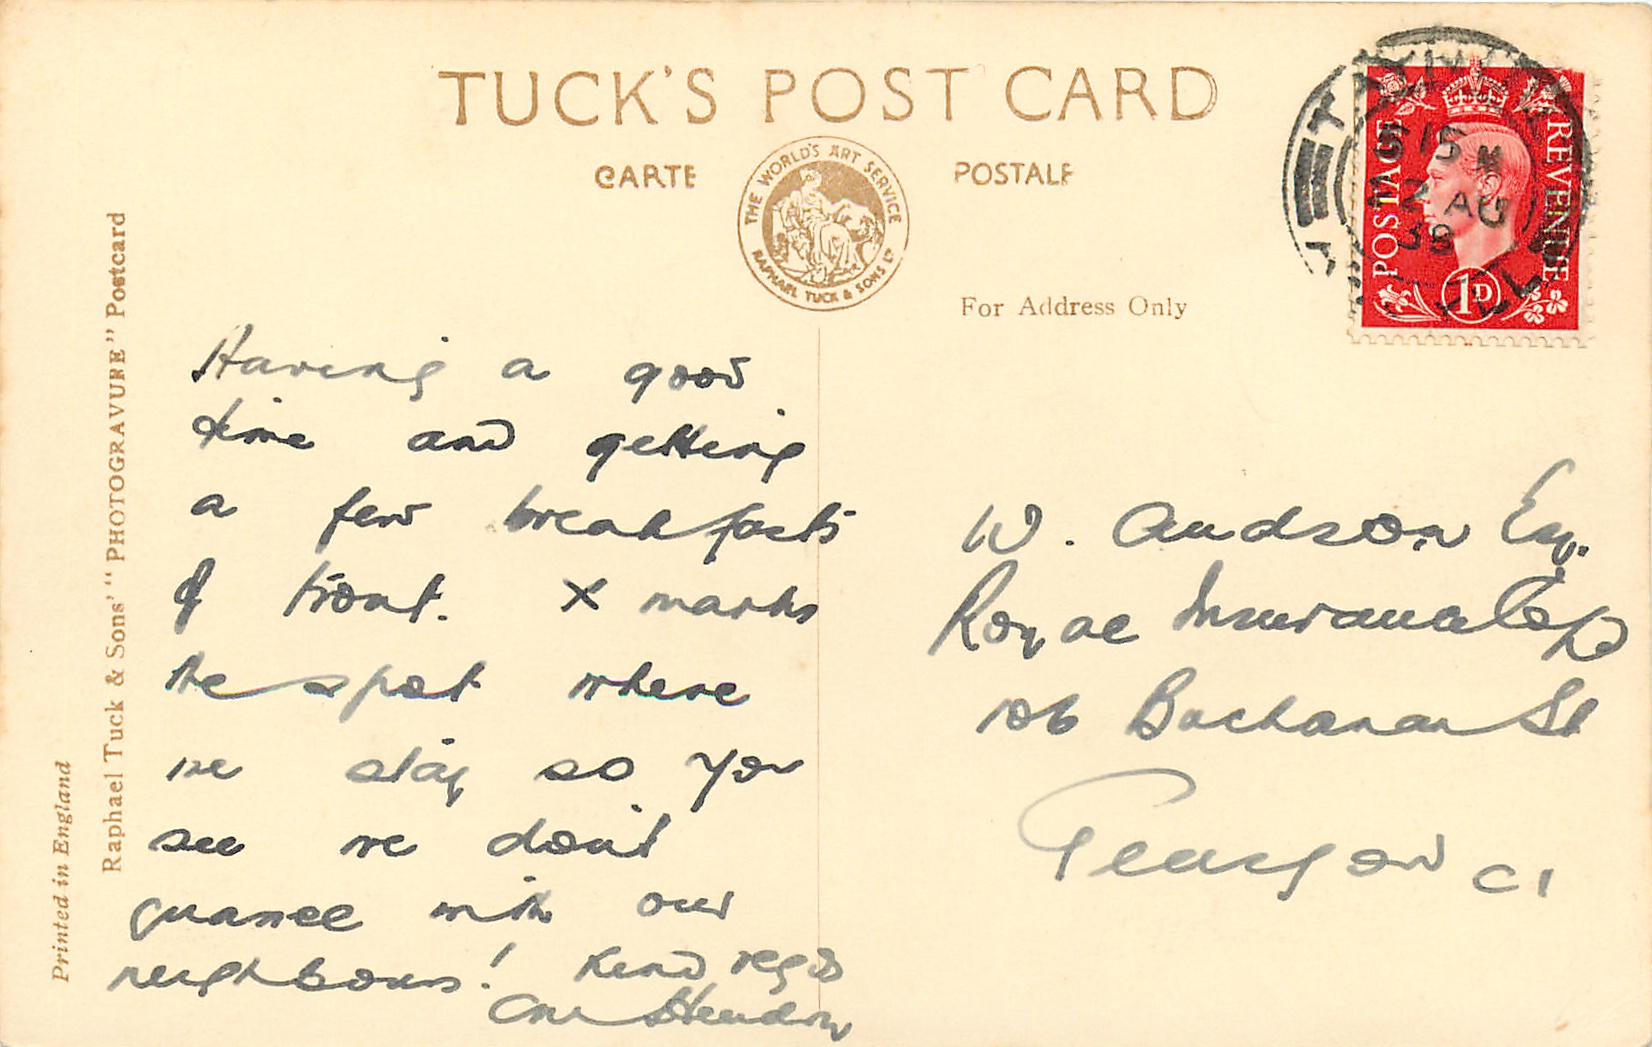 TUCK'S POST CARD
CARTE POSTALE
THE WORLD'S ART SERVICE
RAPHAEL TUCK & SONS LTD
For Address Only
POSTAGE REVENUE
1D
5 15 M
2 AU
38
Printed in England
Raphael Tuck & Sons' "PHOTOGRAVURE" Postcard
Having a good
time and getting
a few breakfasts
of trout. X marks
the spot where
we stay so you
see we don't
quarrel with our
neighbours! Kind regds
W. Audson Esq.
Royal Insurance Co
106 Buchanan St
Glasgow C1